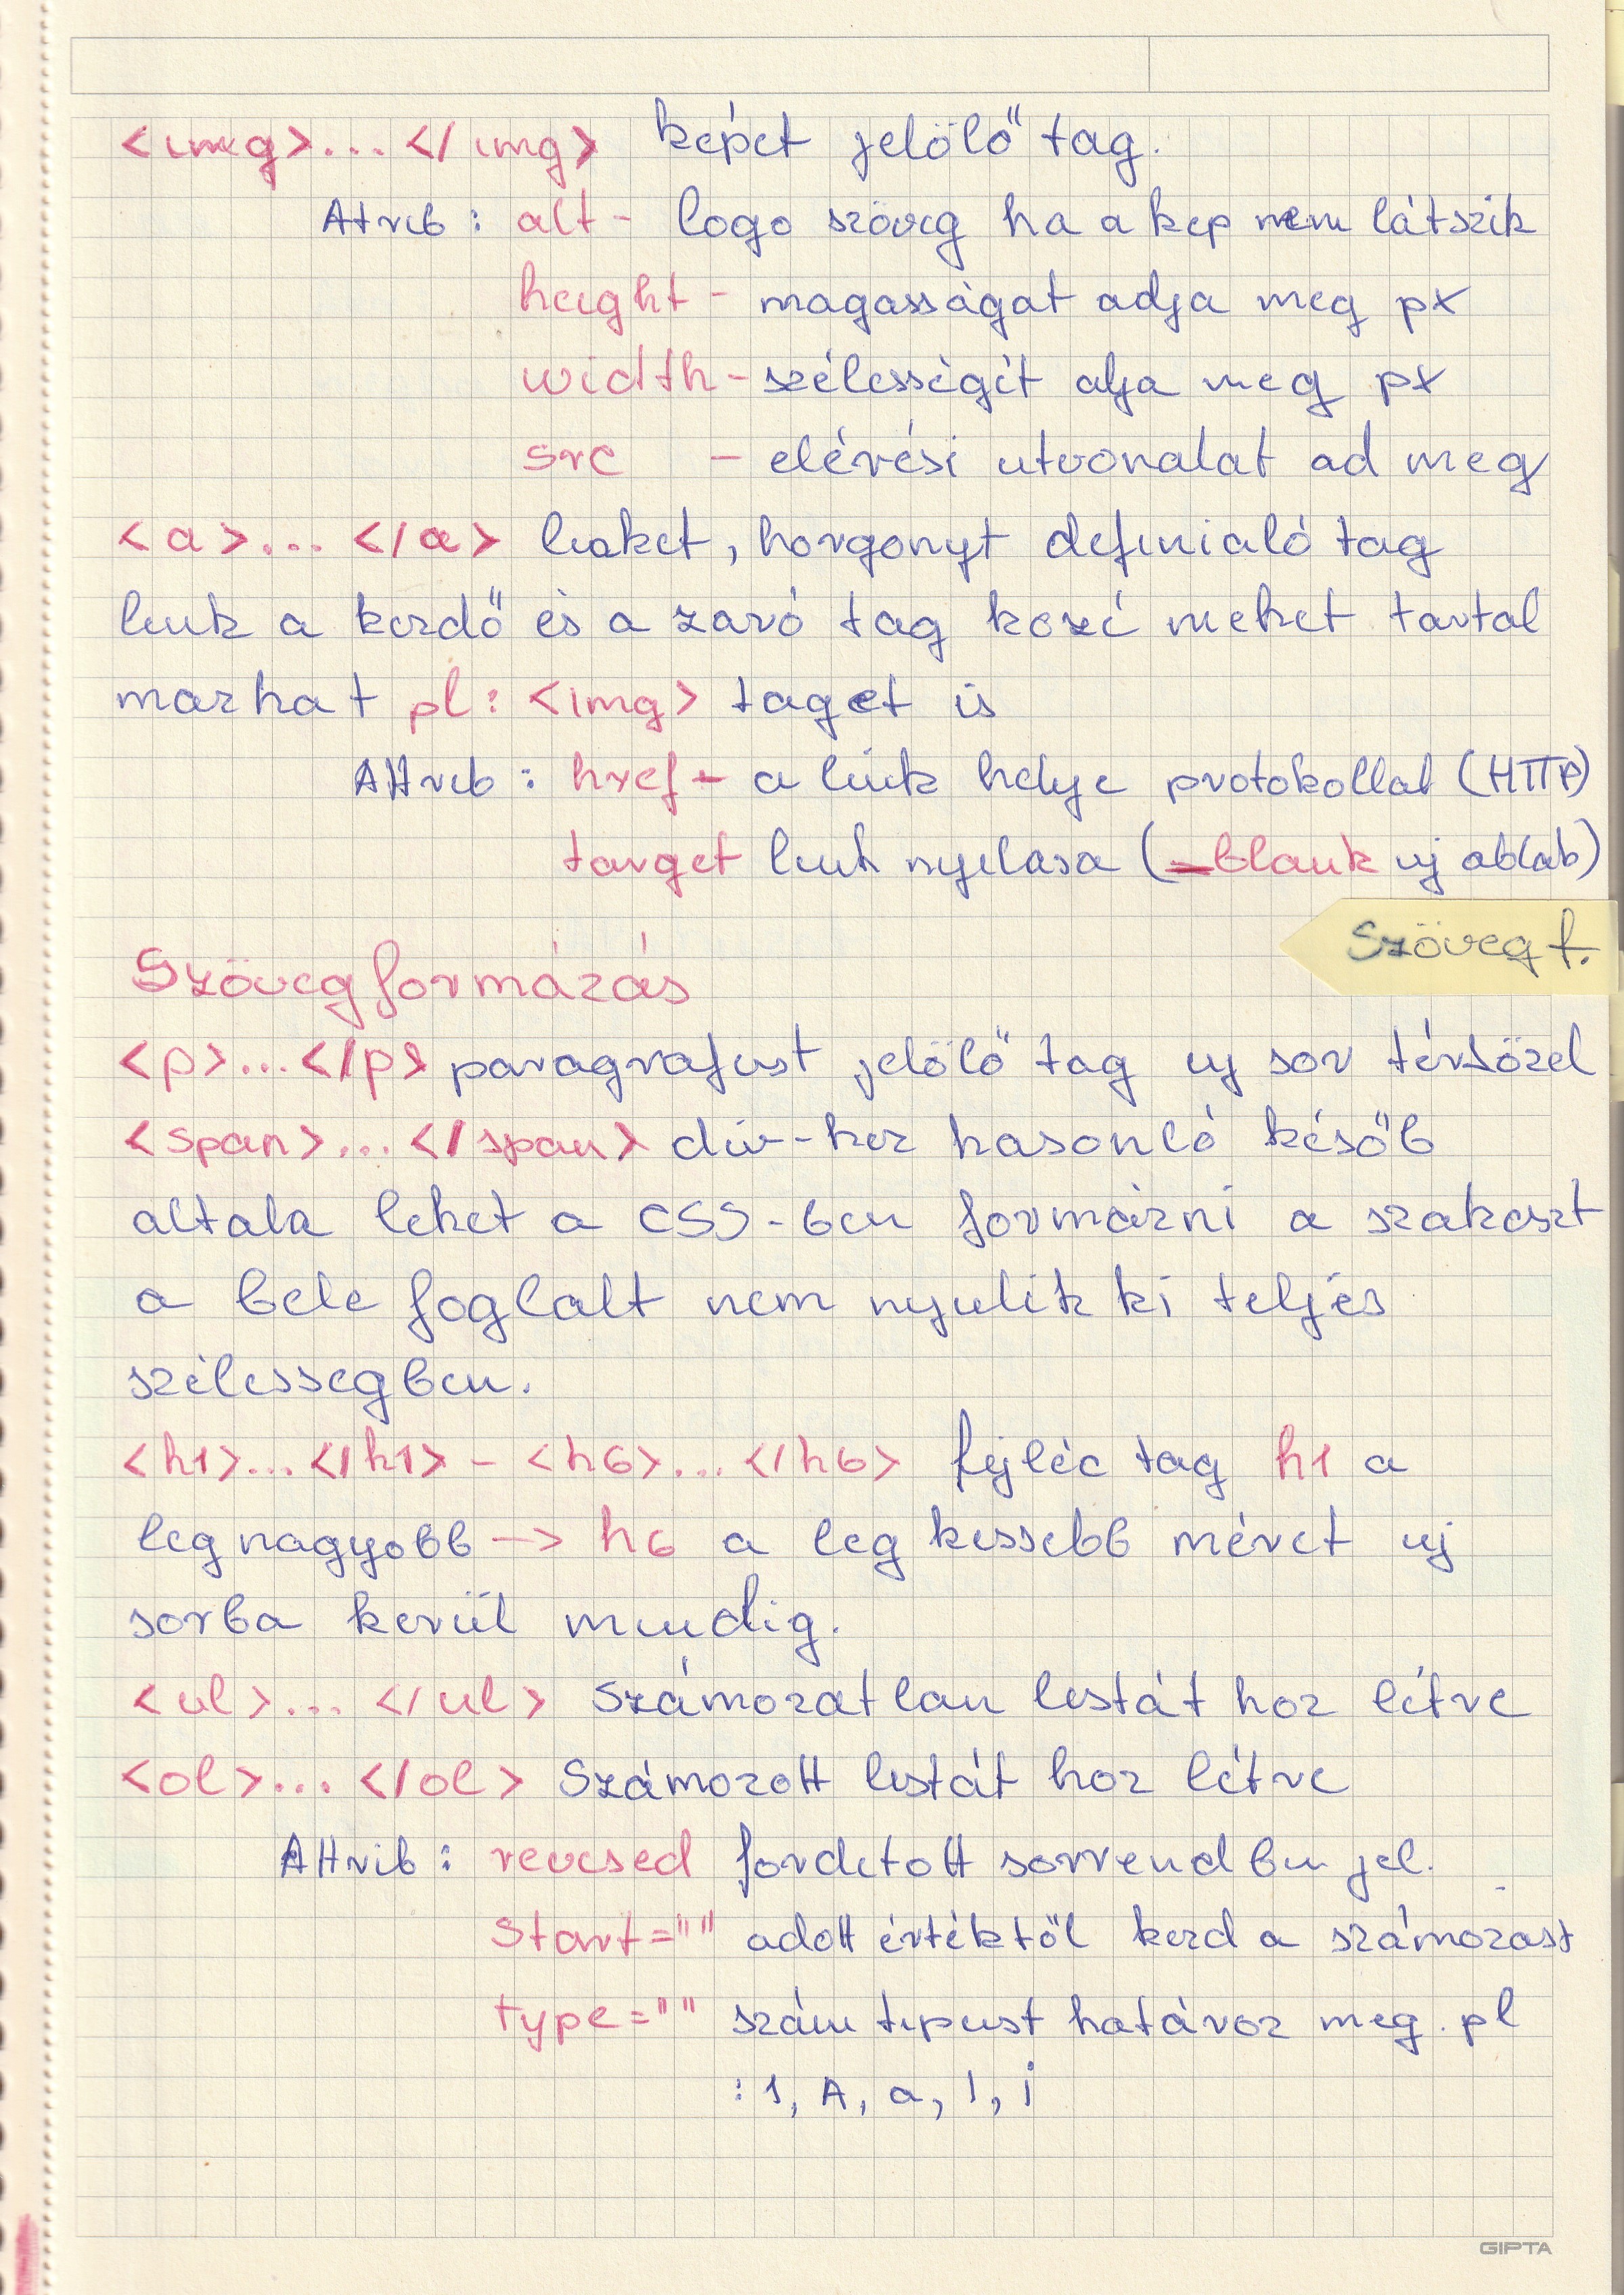 <img>...</img> képet jelölő tag.
Atrib: alt - logo szöveg ha a kep nem látszik
height - magasságat adja meg px
width - szélességét adja meg px
src - elérési utvonalat ad meg
<a>...</a> linket, horgonyt definialó tag
link a kezdő és a zaró tag közé meket tartal
mazhat pl: <img> taget is
Attrib: href - a link helye protokollal (HTTP)
target link nyilasa (_blank uj ablab)
Szöveg f.
Szövegformázás
<p>...</p> paragrafust jelölő tag uj sor térközel
<span>...</span> div-hez hasonló késöb
altala lehet a CSS-ben formázni a szakaszt
a bele foglalt nem nyulik ki teljes
szélessegben.
<h1>...</h1> - <h6>...</h6> fejléc tag h1 a
leg nagyobb -> h6 a leg kissebb méret uj
sorba kerül mindig.
<ul>...</ul> Számozatlan listát hoz létre
<ol>...</ol> Számozott listát hoz létre
Attrib: revesed forditott sorrendbn jel.
Start="" adott értéktől kezd a számozast
type="" szám tipust határoz meg. pl
: 1, A, a, I, i
GIPTA